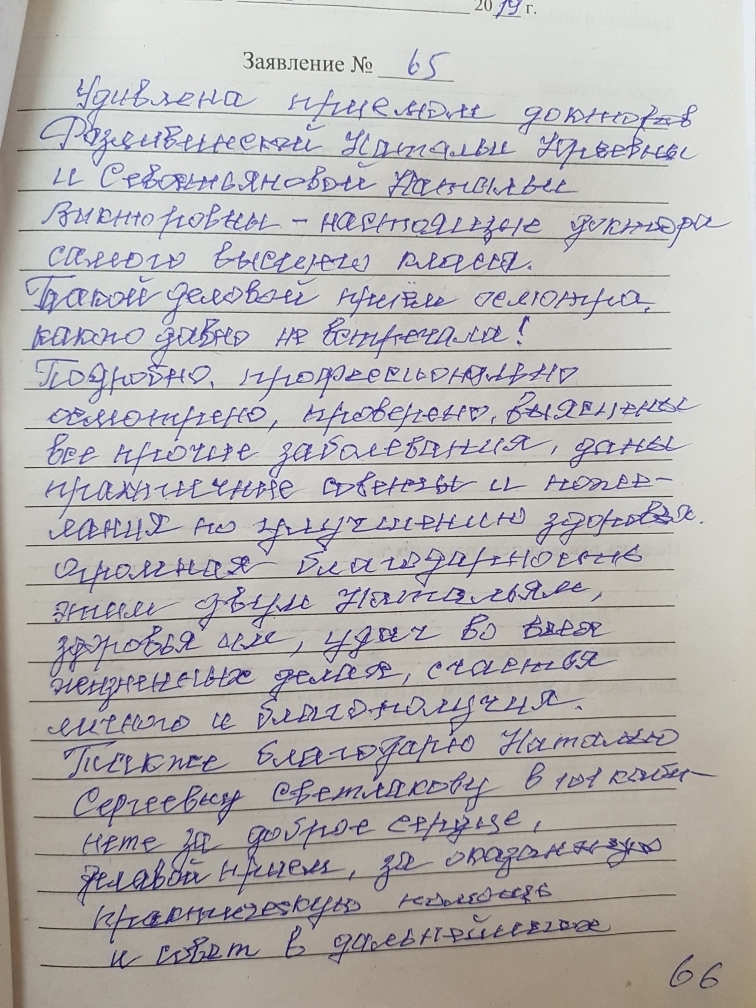 2019 г.
Заявление № 65
Удивлена приемом докторов
Натальи Юрьевны
и Севостьяновой Натальи
Викторовны - настоящие доктора
самого высшего класса.
Такой деловой приём осмотра,
какого давно не встречала!
Подробно, профессионально
осмотрено, проверено, выяснены
все прочие заболевания, даны
практичные советы и поже-
лания по улучшению здоровья.
Огромная благодарность
этим двум Натальям,
здоровья им, удач во всех
жизненных делах, счастья
личного и благополучия.
Также благодарю Наталью
Сергеевну Светлакову в 101 каби-
нете за доброе сердце,
деловой прием, за оказанную
практическую помощь
и совет в дальнейших
66